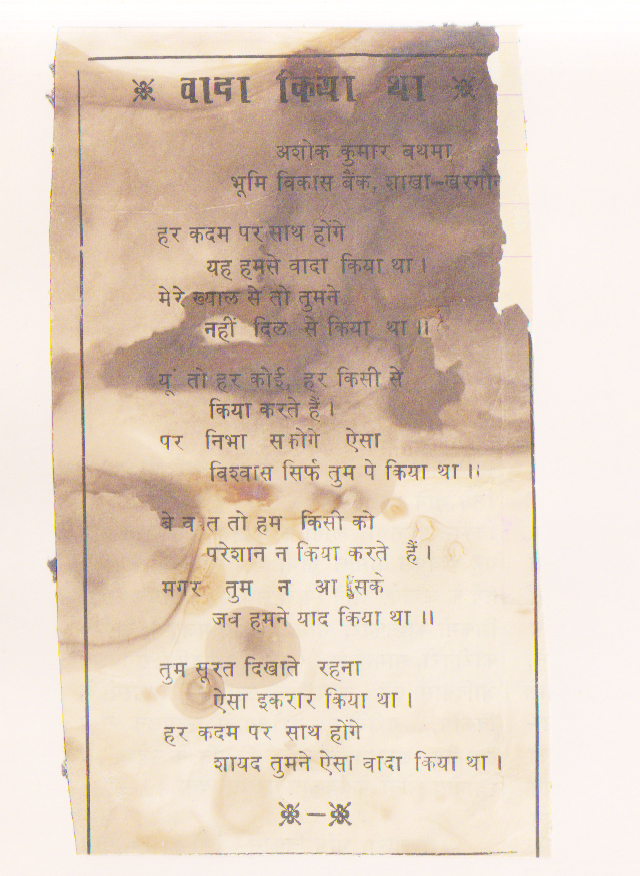 वादा किया था
अशोक कुमार बथमा
भूमि विकास बैंक, शाखा-खरगोन
हर कदम पर साथ होंगे
यह हमसे वादा किया था ।
मेरे ख्याल से तो तुमने
नहीं दिल से किया था ।।
यूं तो हर कोई, हर किसी से
किया करते हैं ।
पर निभा सकोगे ऐसा
विश्वास सिर्फ तुम पे किया था ।।
बे वात तो हम किसी को
परेशान न किया करते हैं ।
मगर तुम न आ सके
जब हमने याद किया था ।।
तुम सूरत दिखाते रहना
ऐसा इकरार किया था ।
हर कदम पर साथ होंगे
शायद तुमने ऐसा वादा किया था ।